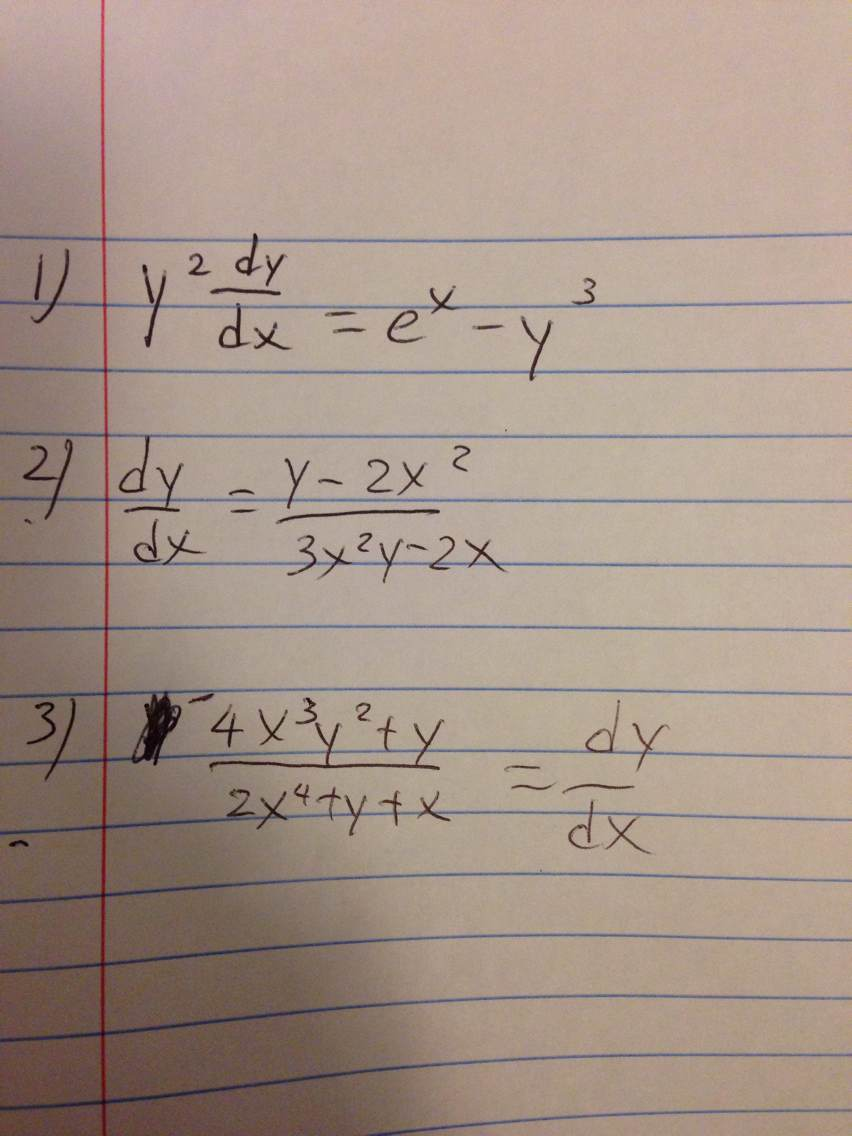 1) y² dy/dx = eˣ - y³
2) dy/dx = (y - 2x²)/(3x²y - 2x)
3) (-4x³y² + y)/(2x⁴ + y + x) = dy/dx